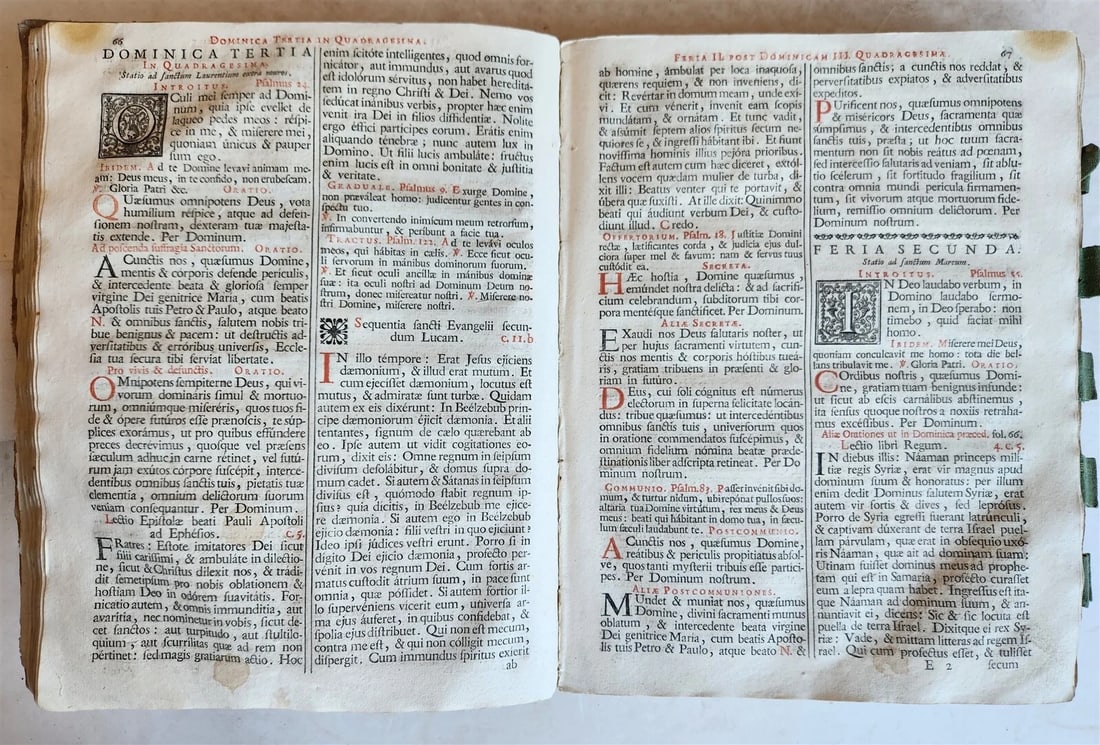 66
DOMINICA TERTIA IN QUADRAGESIMA.
DOMINICA TERTIA
IN QUADRAGESIMA.
Statio ad sanctum Laurentium extra muros.
INTROITUS. Psalmus 24.
OCuli mei semper ad Domi-
num, quia ipse evellet de
laqueo pedes meos: réspi-
ce in me, & miserere mei,
quoniam unicus & pauper
sum ego.
IBIDEM. Ad te Domine levavi animam me-
am: Deus meus, in te confido, non erubescam.
℣. Gloria Patri &c. ORATIO.
QUæsumus omnipotens Deus, vota
humílium réspice, atque ad defen-
sionem nostram, dexteram tuæ majesta-
tis extende. Per Dominum.
Ad poscenda suffragia Sanctorum. ORATIO.
A Cunctis nos, quæsumus Domine,
mentis & corporis defende perículis,
& intercedente beata & gloriosa semper
virgine Dei genitrice Maria, cum beatis
Apostolis tuis Petro & Paulo, atque beato
N. & omnibus sanctis, salutem nobis tri-
bue benignus & pacem: ut destructis ad-
versitatibus & erróribus universis, Eccle-
sia tua secura tibi serviat libertate.
Pro vivis & defunctis. ORATIO.
OMnipotens sempiterne Deus, qui vi-
vorum domináris simul & mortuo-
rum, omniúmque miseréris, quos tuos fi-
de & ópere futúros esse prænoscis, te súp-
plices exorámus, ut pro quibus effúndere
preces decrévimus, quosque vel præsens
sæculum adhuc in carne rétinet, vel futú-
rum jam exútos córpore suscépit, interce-
dentibus omnibus sanctis tuis, pietatis tuæ
clementia, omnium delictórum suorum
véniam consequantur. Per Dominum.
Lectio Epistolæ beati Pauli Apostoli
ad Ephésios. c. 5.
FRatres: Estote imitatores Dei sicut
filii carissimi, & ambuláte in dilectio-
ne, sicut & Christus dilexit nos, & trádi-
dit semetípsum pro nobis oblationem &
hostiam Deo in odórem suavitátis. For-
nicatio autem, & omnis immunditia, aut
avaritia, nec nominetur in vobis, sicut de-
cet sanctos: aut turpitudo, aut stultilo-
quium, aut scurrilitas quæ ad rem non
pértinet: sed magis gratiarum actio. Hoc
enim scitóte intelligentes, quod omnis for-
nicátor, aut immundus, aut avarus quod
est idolórum sérvitus, non habet heredita-
tem in regno Christi & Dei. Nemo vos
sedúcat inánibus verbis, propter hæc enim
venit ira Dei in filios diffidentiæ. Nolite
ergo éffici partícipes eorum. Erátis enim
aliquando ténebræ; nunc autem lux in
Domino. Ut filii lucis ambuláte: fructus
enim lucis est in omni bonitate & justitia
& veritate.
GRADUALE. Psalmus 9. Exurge Domine,
non præváleat homo: judicentur gentes in con-
spectu tuo.
℣. In convertendo inimicum meum retrorsum,
infirmabuntur, & peribunt a facie tua.
TRACTUS. Psalm. 122. Ad te levávi oculos
meos, qui hábitas in cælis. ℣. Ecce sicut ocu-
li servorum in mánibus dominorum suorum.
℣. Et sicut oculi ancíllæ in mánibus dominæ
suæ: ita oculi nostri ad Dominum Deum no-
strum, donec misereatur nostri. ℣. Miserere no-
stri Domine, miserere nostri.
Sequentia sancti Evangelii secun-
dum Lucam. c. 11. b
IN illo témpore: Erat Jesus ejíciens
dæmonium, & illud erat mutum. Et
cum ejecísset dæmonium, locutus est
mutus, & admirátæ sunt turbæ. Quidam
autem ex eis dixérunt: In Beélzebub prin-
cipe dæmoniorum éjicit dæmonia. Et alii
tentantes, signum de cælo quærebant ab
eo. Ipse autem ut vidit cogitationes eo-
rum, dixit eis: Omne regnum in seípsum
divísum desolábitur, & domus supra do-
mum cadet. Si autem & Sátanas in seípsum
divísus est, quómodo stabit regnum ip-
sius? quia dícitis, in Beélzebub me ejíce-
re dæmonia. Si autem ego in Beélzebub
ejício dæmonia: filii vestri in quo ejíciunt?
Ideo ipsi júdices vestri erunt. Porro si in
dígito Dei ejício dæmonia, profecto per-
vénit in vos regnum Dei. Cum fortis ar-
matus custodit átrium suum, in pace sunt
omnia, quæ póssidet. Si autem fortior il-
lo supervéniens vícerit eum, universa ar-
ma ejus áuferet, in quibus confidebat, &
spolia ejus distríbuet. Qui non est mecum,
contra me est, & qui non cólligit mecum,
dispergit. Cum immundus spíritus exíerit
ab
FERIA II. POST DOMINICAM III. QUADRAGESIMA.
67
ab homine, ámbulat per loca inaquosa,
quærens requiem, & non inveniens, di-
cit: Revértar in domum meam, unde exí-
vi. Et cum vénerit, invenit eam scopis
mundátam, & ornátam. Et tunc vadit,
& assúmit septem alios spíritus secum ne-
quiores se, & ingressi hábitant ibi. Et fiunt
novíssima hominis illius pejóra prióribus.
Factum est autem cum hæc díceret, extól-
lens vocem quædam mulier de turba, di-
xit illi: Beatus venter qui te portavit, &
úbera quæ suxísti. At ille dixit: Quinimmo
beati qui áudiunt verbum Dei, & custo-
diunt illud. Credo.
OFFERTORIUM. Psalm. 18. Justitiæ Dómini
rectæ, lætificantes corda, & judicia ejus dul-
ciora super mel & favum: nam & servus tuus
custódit ea. SECRETA.
HÆc hostia, Domine quæsumus,
emúndet nostra delicta: & ad sacrifi-
cium celebrandum, subditorum tibi cor-
pora mentésque sanctíficet. Per Dominum.
ALIÆ SECRETÆ.
EXaudi nos Deus salutaris noster, ut
per hujus sacramenti virtutem, cun-
ctis nos mentis & corporis hóstibus tueá-
ris, gratiam tribuens in præsenti & glo-
riam in futúro.
DEus, cui soli cógnitus est númerus
electórum in superna felicitate locan-
dus: tribue quæsumus: ut intercedentibus
omnibus sanctis tuis, universorum quos
in oratione commendatos suscépimus, &
omnium fidelium nómina beatæ prædes-
tinationis liber adscripta retineat. Per Do
minum nostrum.
COMMUNIO. Psalm. 83. Passer invénit sibi do-
mum, & turtur nidum, ubi reponat pullos suos:
altaria tua Domine virtútum, rex meus & Deus
meus: beati qui hábitant in domo tua, in sæcu-
lum sæculi laudabunt te. POSTCOMMUNIO.
A Cunctis nos, quæsumus Domine,
reátibus & periculis propitiatus absol-
ve, quos tanti mysterii tribuis esse partici-
pes. Per Dominum nostrum.
ALIÆ POSTCOMMUNIONES.
MUndet & muniat nos, quæsumus
Domine, divini sacramenti munus
oblatum, & intercedente beata virgine
Dei genitrice Maria, cum beatis Aposto-
lis tuis Petro & Paulo, atque beato N. &
omnibus sanctis; a cunctis nos reddat, &
perversitatibus expiatos, & advérsitatibus
expeditos.
PUrificent nos, quæsumus omnipotens
& miséricors Deus, sacramenta quæ
súmpsimus, & intercedentibus omnibus
sanctis tuis, præsta; ut hoc tuum sacra-
mentum non sit nobis reátus ad pœnam,
sed intercessio salutaris ad veniam, sit ablu-
tio scélerum, sit fortitudo fragilium, sit
contra omnia mundi pericula firmamen-
tum, sit vivorum atque mortuorum fide-
lium, remissio omnium delictorum. Per
Dominum nostrum.
FERIA SECUNDA.
Statio ad sanctum Marcum.
INTROITUS. Psalmus 55.
IN Deo laudabo verbum, in
Domino laudabo sermo-
nem, in Deo sperabo: non
timebo, quid faciat mihi
homo.
IBIDEM. Miserere mei Deus,
quoniam conculcavit me homo: tota die bel-
lans tribulavit me. ℣. Gloria Patri. ORATIO.
COrdibus nostris, quæsumus Domi-
ne, gratiam tuam benignus infunde:
ut sicut ab escis carnálibus abstinemus,
ita sensus quoque nostros a noxiis retraha-
mus excéssibus. Per Dominum.
Aliæ Orationes ut in Dominica præced. fol. 66.
Lectio libri Regum. 4. c. 5.
IN diebus illis: Náaman princeps mili-
tiæ regis Syriæ, erat vir magnus apud
dominum suum & honoratus: per illum
enim dedit Dominus salutem Syriæ, erat
autem vir fortis & dives, sed leprósus.
Porro de Syria egressi fúerant latrúnculi,
& captivam dúxerant de terra Israel puel-
lam párvulam, quæ erat in obsequio uxó-
ris Náaman, quæ ait ad dominam suam:
Utinam fuísset dominus meus ad prophe-
tam qui est in Samaria, profécto curasset
eum a lepra quam habet. Ingressus est ita-
que Náaman ad dominum suum, & an-
nuntiavit ei, dicens: Sic & sic locuta est
puella de terra Israel. Dixítque ei rex Sy-
riæ: Vade, & mittam litteras ad regem Is-
rael. Qui cum profectus esset, & tulisset
E 2 secum